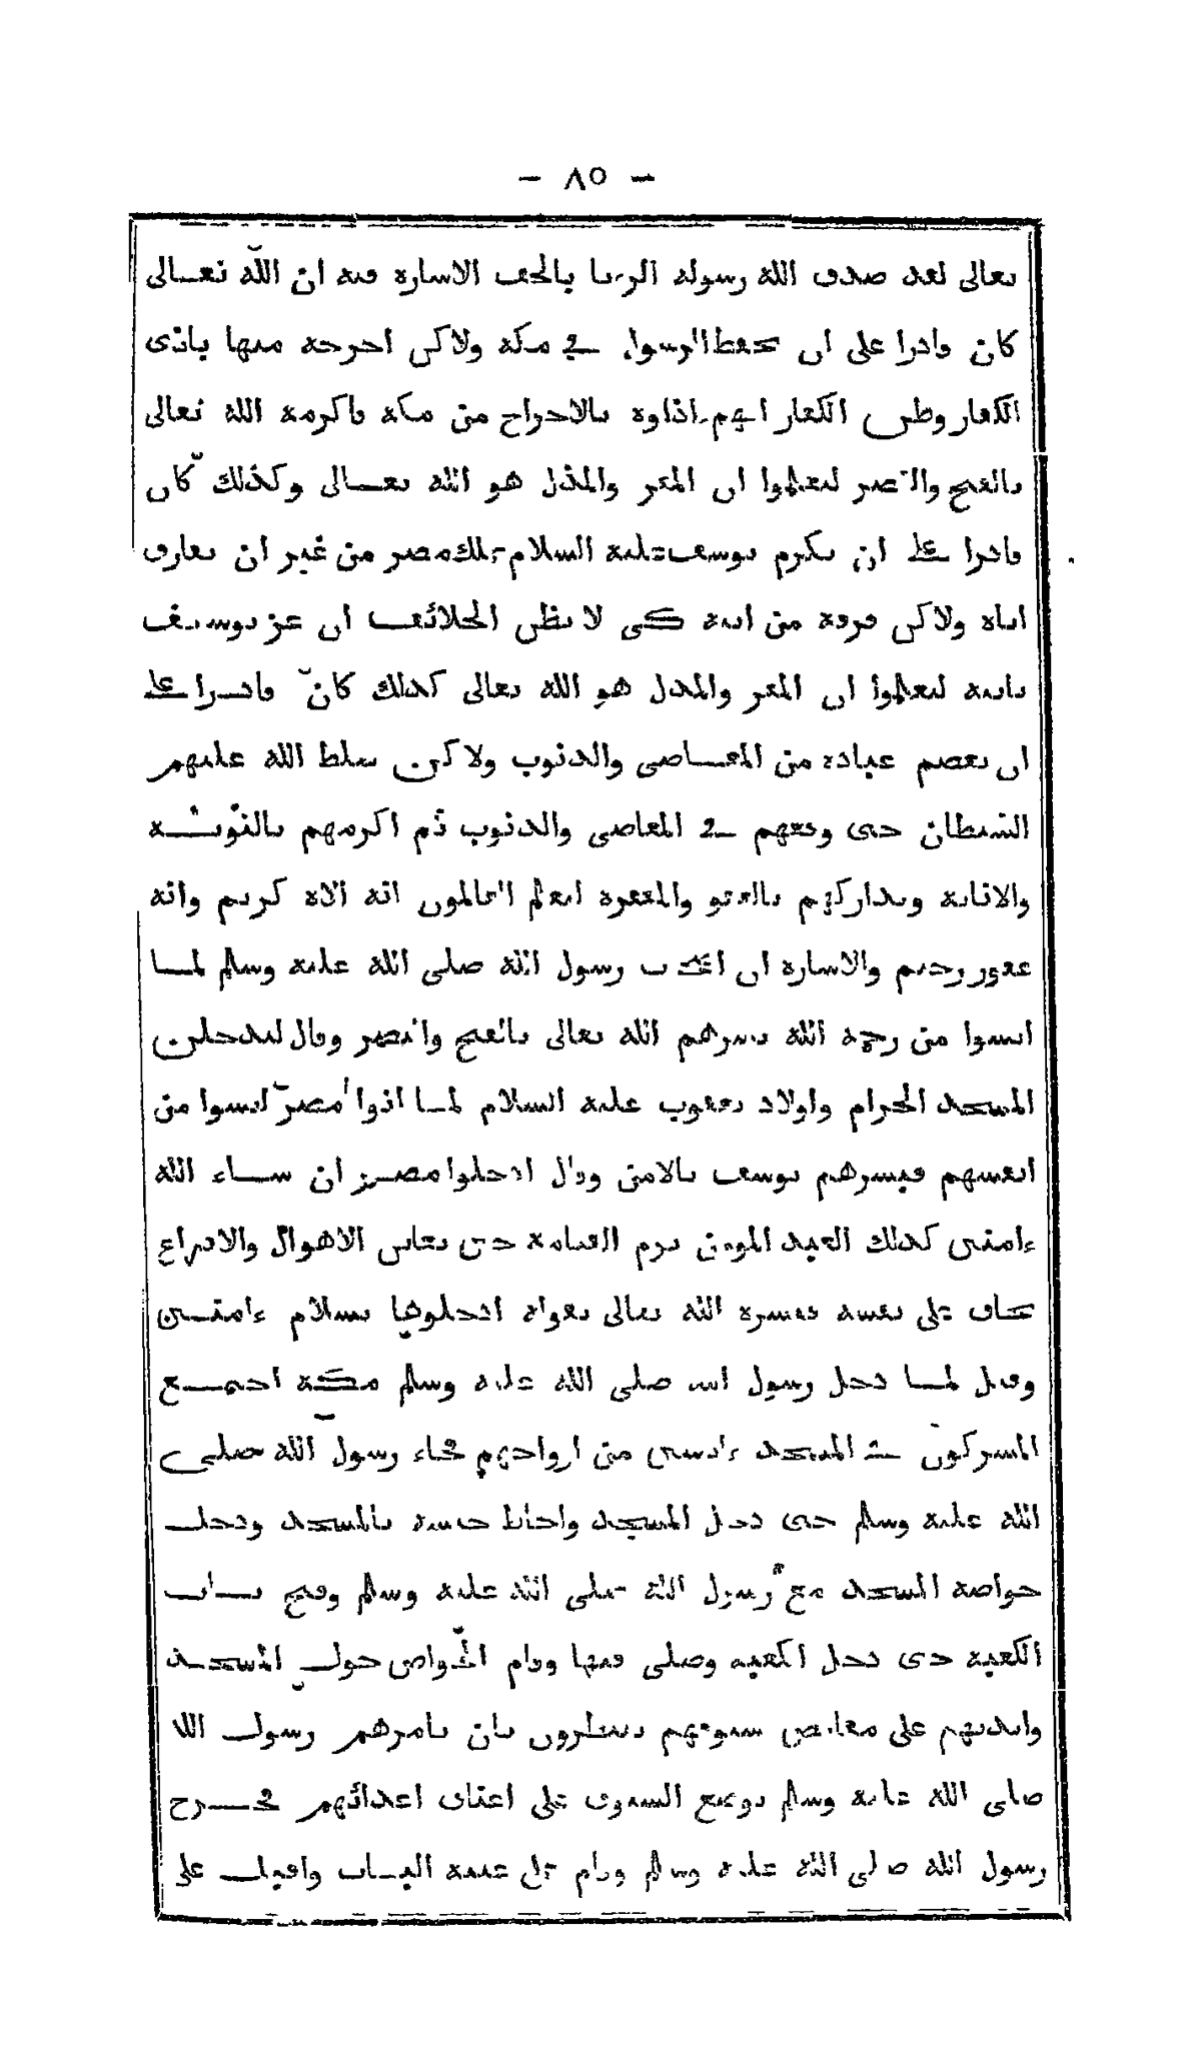 - ٨٥ -
تعالى لقد صدق الله رسوله الرءيا بالحق الاشارة فيه ان الله تعالى
كان قادرا على ان يحفظ الرسول في مكة ولاكن اخرجه منها باذى
الكفار وظن الكفار انهم اذاوه بالاخراج من مكة فاكرمه الله تعالى
بالفتح والنصر ليعلموا ان المعز والمذل هو الله تعالى وكذلك كان
قادرا على ان يكرم يوسف عليه السلام بملك مصر من غير ان يفارق
اباه ولاكن فرقه من ابيه كي لا يظن الخلائق ان عز يوسف
بابيه ليعلموا ان المعز والمذل هو الله تعالى كذلك كان قادرا على
ان يعصم عباده من المعاصى والذنوب ولاكن سلط الله عليهم
الشيطان حتى وقعهم في المعاصى والذنوب ثم اكرمهم بالتوبة
والانابة وتداركهم بالعفو والمغفرة ليعلم العالمون انه الاه كريم وانه
غفور رحيم والاشارة ان اصحاب رسول الله صلى الله عليه وسلم لما
ايسوا من رحمة الله بشرهم الله تعالى بالفتح والنصر وقال لتدخلن
المسجد الحرام واولاد يعقوب عليه السلام لما اتوا مصر ايسوا من
انفسهم فبشرهم يوسف بالامن وقال ادخلوا مصر ان شاء الله
ءامنين كذلك العبد المومن يوم القيامة حين يعاين الاهوال والافزاع
يخاف على نفسه فيبشره الله تعالى بقوله ادخلوها بسلام ءامنين
وقيل لما دخل رسول الله صلى الله عليه وسلم مكة اجتمع
المشركون في المسجد ءايسين من ارواحهم فجاء رسول الله صلى
الله عليه وسلم حتى دخل المسجد واحاط جيشه بالمسجد ودخل
خواصه المسجد مع رسول الله صلى الله عليه وسلم وفتح باب
الكعبة حتى دخل الكعبة وصلى فيها وقام الخواص حول المسجد
وايديهم على مقابض سيوفهم ينتظرون بان يامرهم رسول الله
صلى الله عليه وسلم بوضع السيوف على اعناق اعدائهم فخرج
رسول الله صلى الله عليه وسلم وقام على عتبة الباب واقبل على